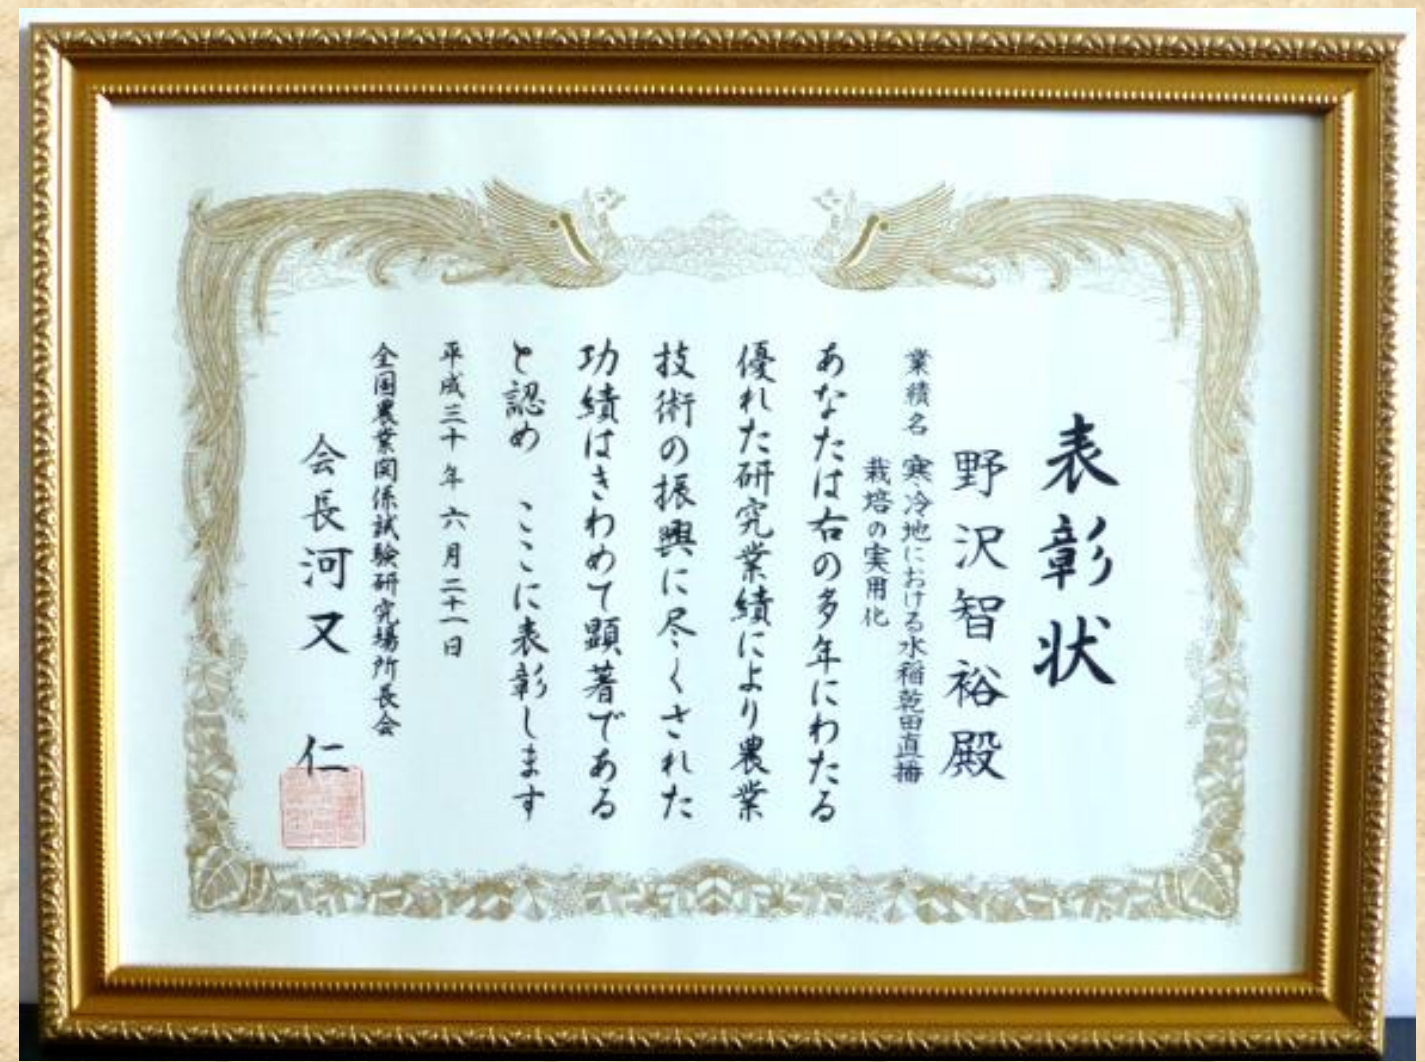 表彰状
野沢智裕殿
業績名 寒冷地における水稲乾田直播
栽培の実用化
あなたは右の多年にわたる
優れた研究業績により農業
技術の振興に尽くされた
功績はきわめて顕著である
と認め ここに表彰します
平成三十年六月二十一日
全国農業関係試験研究場所長会
会長 河又 仁